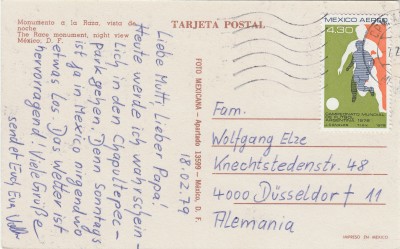 Monumento a la Raza, vista de
noche
The Race monument, night view
México, D. F.
TARJETA POSTAL
Liebe Mutti, Lieber Papa!
Heute werde ich wahrschein-
lich in den Chapultepec-
park gehen. Denn Sonntags
ist ja in Mexico nirgendwo
etwas los. Das Wetter ist
hervorragend. Viele Grüße
sendet Euch Eva
18.02.79
FOTO MEXICANA - Apartado 13599 - México, D. F.
MEXICO AEREO
4.30
CAMPEONATO MUNDIAL
DE FUTBOL
ARGENTINA 1978
Fam.
Wolfgang Elze
Knechtstedenstr. 48
4000 Düsseldorf 11
Alemania
IMPRESO EN MEXICO